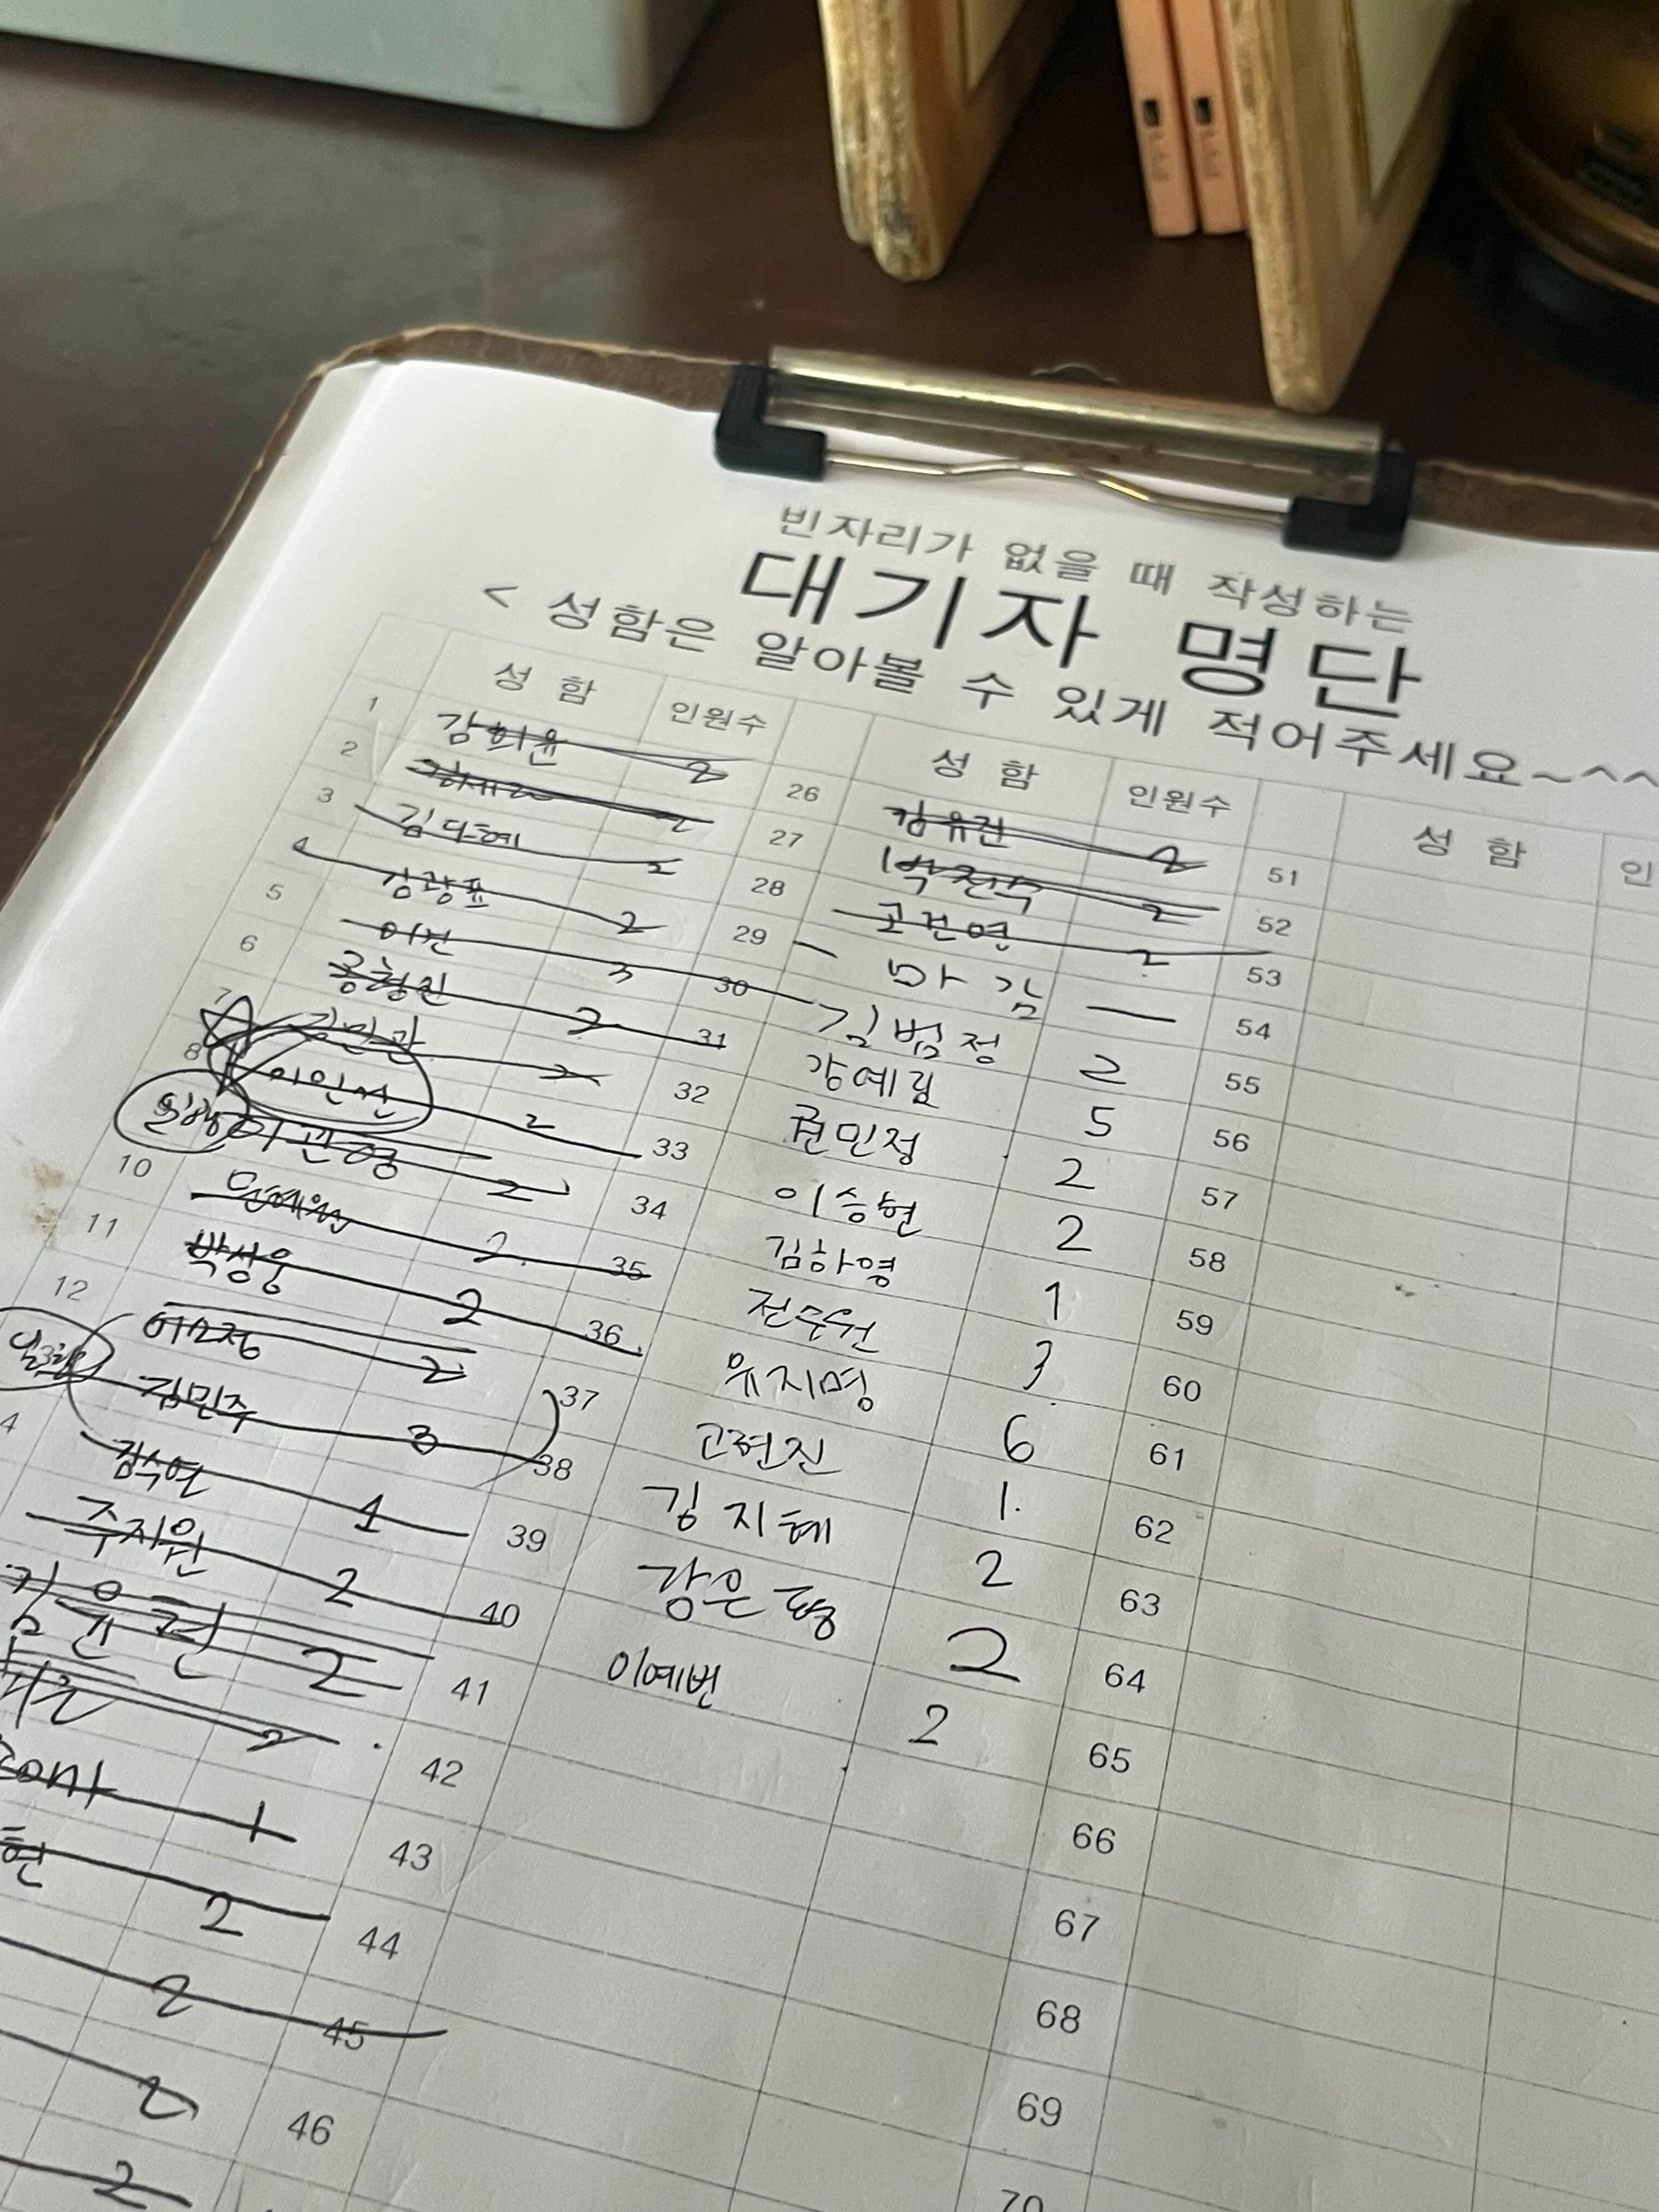 빈자리가 없을 때 작성하는
대기자 명단
< 성함은 알아볼 수 있게 적어주세요~^^
성 함 인원수
1 강희윤 2
2 2
3 김다혜 2
4 김광표 2
5 이건 3
6 홍형진 2
7 김민관 2
8 이인선 2
일행 이관형 2
10 2
11 박성웅 2
12 이소정 2
김민주 3
4 김수연 1
주지원 2
2
2
1
현 2
2
2
2
성 함 인원수
26 김유진 2
27 2
28 2
29 — 마 감 —
30 김범정 2
31 강예림 5
32 권민정 2
33 이승현 2
34 김하영 1
35 전주원 3
36 유지명 6
37 고현진 1.
38 김지혜 2
39 강은형 2
40 이예빈 2
41
42
43
44
45
46
성 함 인
51
52
53
54
55
56
57
58
59
60
61
62
63
64
65
66
67
68
69
70